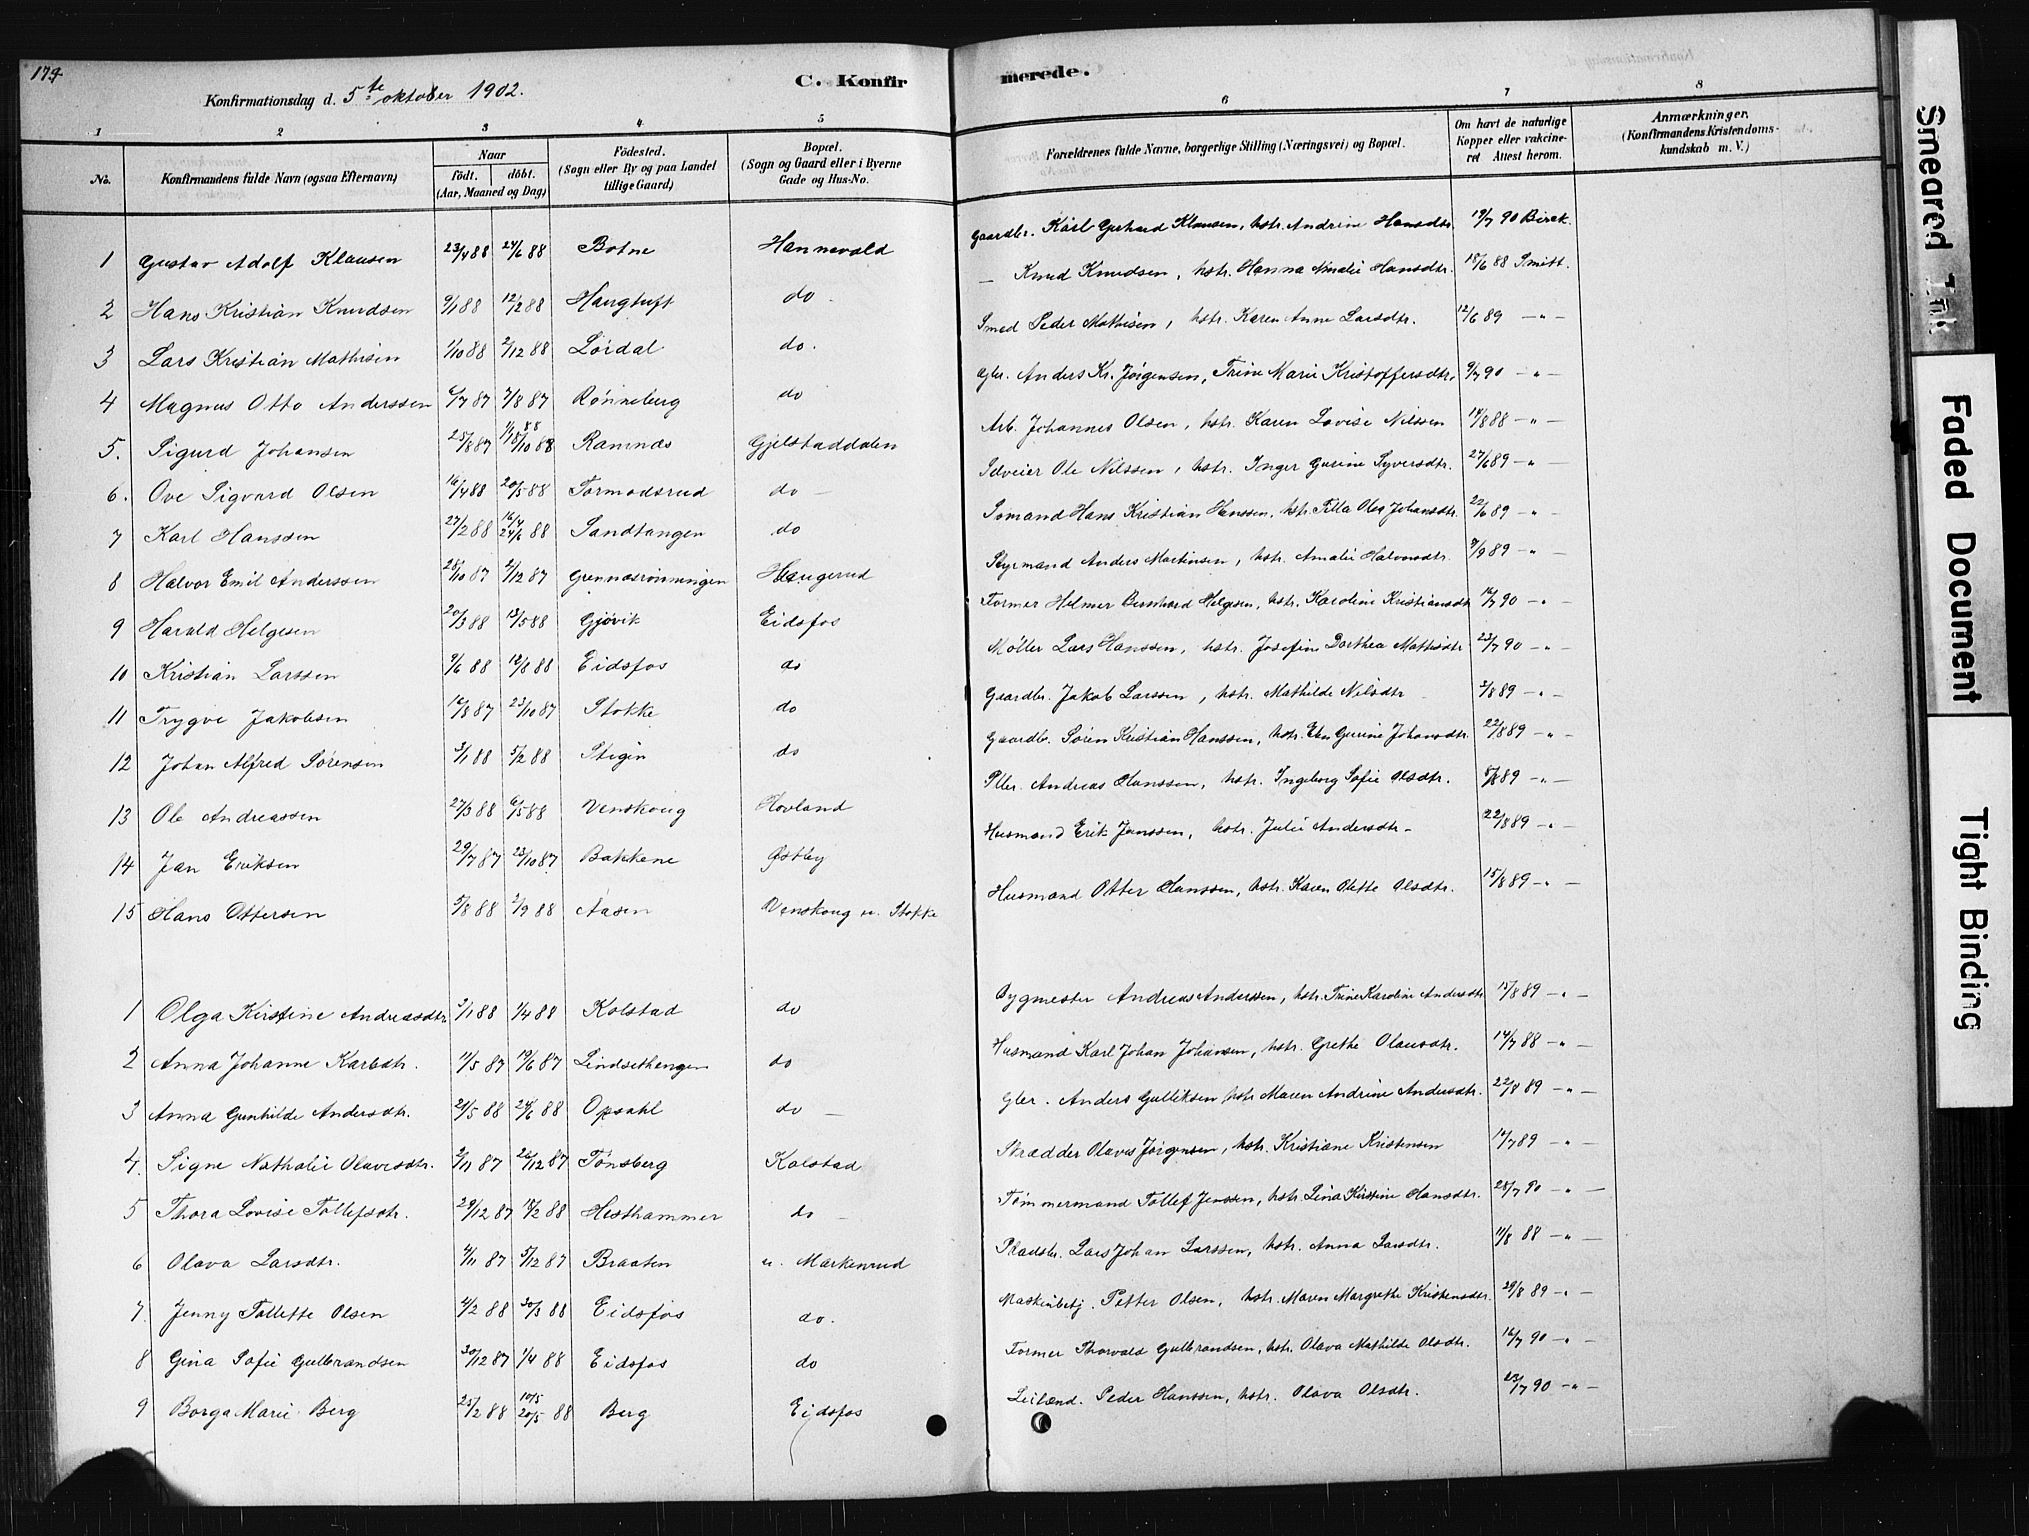 174
Konfirmationsdag d. 5te oktober 1902.
C. Konfirmerede.
1 2 3 4 5 6 7 8
No.
Konfirmandens fulde Navn (ogsaa Efternavn)
Naar
födt. döbt.
(Aar, Maaned og Dag)
Födested.
(Sogn eller By og paa Landet
tillige Gaard)
Bopæl.
(Sogn og Gaard eller i Byerne
Gade og Hus-No.
Forældrenes fulde Navne, borgerlige Stilling (Næringsvei) og Bopæl.
Om havt de naturlige
Kopper eller vakcine-
ret Attest herom.
Anmærkninger.
(Konfirmandens Kristendoms-
kundskab m. V.)
1 Gustav Adolf Klausen 23/4 88 24/6 88 Botne Hannevold Gaardbr. Karl Gerhard Klausen, hstr. Andrine Hansdtr. 19/7 90 Birck.
2 Hans Kristian Knudsen 9/1 88 12/2 88 Haugtuft do - — Knud Knudsen, hstr. Hanna Amalie Hansdtr. 18/6 88 Smitt.
3 Lars Kristian Mathisen 1/10 88 2/12 88 Lördal do. Smed Peder Mathisen, hstr. Karen Anne Larsdtr. 12/6 89 — " —
4 Magnus Otto Anderssen 6/7 87 7/8 87 Rønneberg do Gbr. Anders Kr. Jörgensen, Trine Marie Kristoffersdtr. 9/7 90 — " —
5. Sigurd Johansen 25/8 87 Ramnæs Gjelstaddalen Arb. Johannes Olsen, hstr. Karen Lovise Nilssen 14/8 88 — " —
6. Ove Sigvard Olsen 16/4 88 20/5 88 Tormodsrud do — Selveier Ole Nilssen, hstr. Inger Gurine Syversdtr. 27/6 89 — " —
7 Karl Hanssen 27/2 88 16/4 24/6 88 Sandtangen do Sømand Hans Kristian Hanssen, hstr. Tilla Olea Johansdtr. 22/6 89 — " —
8 Halvor Emil Anderssen 28/10 87 4/12 87 Grennæsrønningen Haugerud Styrmand Anders Martinsen, hstr. Amalie Halvorsdtr. 9/9 89 — " —
9 Harald Helgesen 20/3 88 13/5 88 Gjøvik Eidsfos Former Helmer Bernhard Helgesen, hstr. Karoline Kristiansdtr. 16/7 90 — " —
10 Kristian Larssen 9/6 88 12/8 88 Eidsfos do Møller Lars Hanssen, hstr. Josefine Dorthea Mathisdtr. 23/7 90 — " —
11 Trygve Jakobsen 16/8 87 23/10 87 Stokke do Gaardbr. Jakob Larssen, hstr. Mathilde Nilsdtr 2/8 89 — " —
12 Johan Alfred Sørensen 3/1 88 5/2 88 Stigen do Gaardbr. Søren Kristian Hanssen, hstr. Elen Gurine Johansdtr. 22/8 89 — " —
13 Ole Andreassen 27/3 88 6/5 88 Venskoug Hovland Pller. Andreas Hanssen, hstr. Ingeborg Sofie Olsdtr. 5/8 89 — " —
14 Jan Eriksen 29/7 87 23/10 87 Bakkene Østby Husmand Erik Janssen, hstr. Julie Andersdtr. 22/8 89 — " —
15 Hans Ottersen 5/8 88 2/9 88 Aasen Venskoug u. Stokke Husmand Otter Hanssen, hstr. Karen Olette Olsdtr. 15/8 89 — " —
1 Olga Kirstine Andreasdtr 3/1 88 1/4 88 Kolstad do Bygmester Andreas Anderssen, hstr. Trine Karoline Andersdtr 15/8 89 — " —
2 Anna Johanne Karlsdtr. 11/5 87 19/6 87 Lindsethengen do Husmand Karl Johan Johansen, hstr. Grethe Olausdtr. 14/7 88 — " —
3 Anna Gunhilde Andersdtr. 21/5 88 24/6 88 Opsahl do — Gbr. Anders Gulliksen hstr. Maren Andrine Andersdtr. 22/8 89 — " —
4. Signe Nathalie Olavesdtr. 2/11 87 26/12 87 Tønsberg Kolstad Skrædder Olaves Jörgensen, hstr. Kristiane Kristensen 12/7 89 — " —
5 Thora Lovise Tollefsdtr. 29/12 87 18/2 88 Hesthammer do — Tömmermand Tollef Jenssen, hstr. Lina Kirstine Hansdtr. 28/7 90 — " —
6 Olava Larsdtr. 4/11 87 5/12 87 Braaten u. Markerud Pladsbr. Lars Johan Larssen, hstr. Anna Larsdtr. 11/8 88 — " —
7. Jenny Tollette Olsen 4/2 88 30/3 88 Eidsfos do. Maskinbetj. Petter Olsen, hstr. Maren Margrethe Kristensdtr. 29/8 89 — " —
8 Gina Sofie Gulbrandsen 30/12 87 1/4 88 Eidsfos do Former Thorvald Gulbrandsen, hstr. Olava Mathilde Olsdtr. 16/7 90 — " —
9 Borga Marie Berg 25/2 88 10/5 20/5 88 Berg Eidsfos Leilænd. Peder Hanssen, hstr. Olava Olsdtr. 23/7 90 — " —
Smeared Ink
Faded Document
Tight Binding